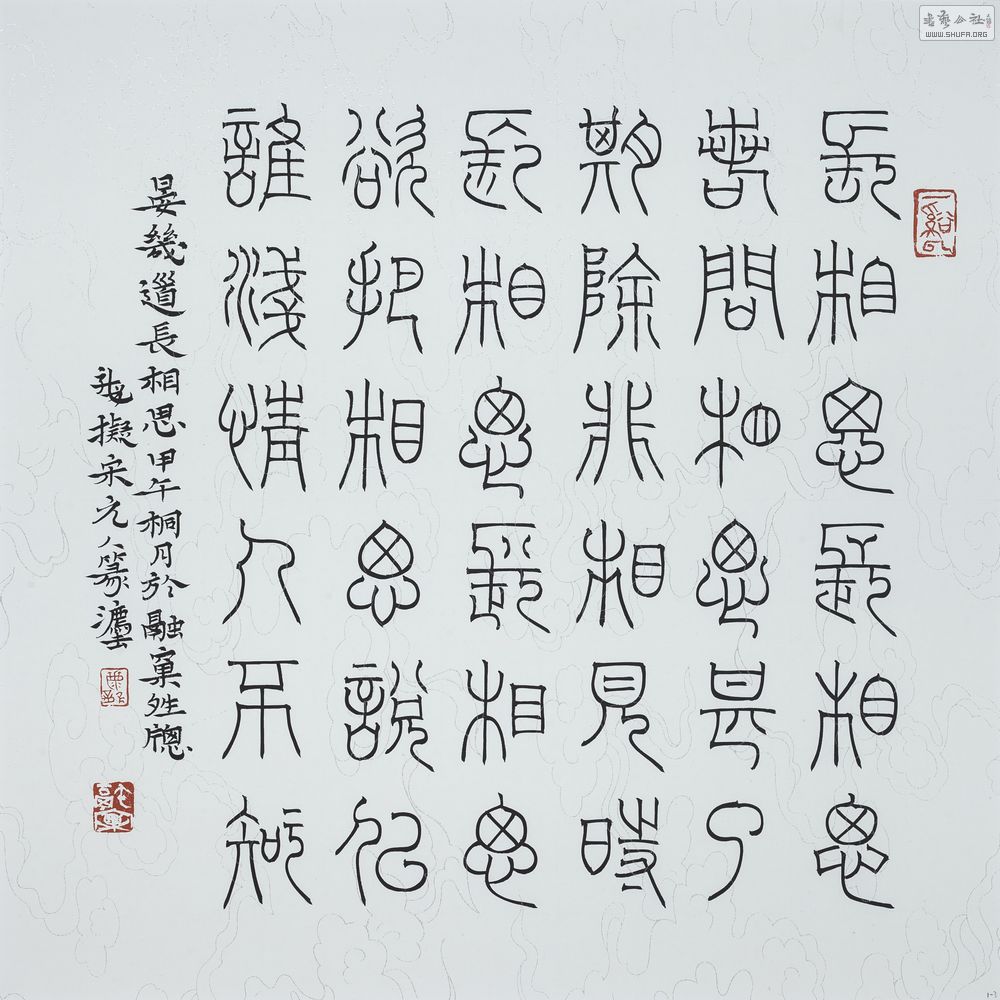 書藝公社
WWW.SHUFA.ORG
長相思長相思
若問相思甚了
期除非相見時
長相思長相思
欲把相思說似
誰淺情人不知
晏幾道長相思甲午桐月於融窠夝牕
擬宋元人篆灋